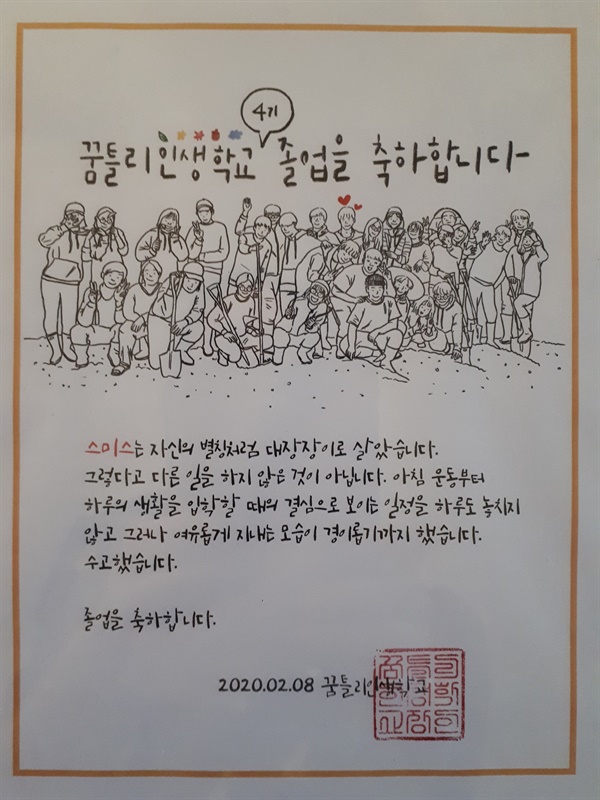 4기
꿈틀리인생학교 졸업을 축하합니다
스미스는 자신의 별칭처럼 대장장이로 살았습니다.
그렇다고 다른 일을 하지 않은 것이 아닙니다. 아침 운동부터
하루의 생활을 입학할 때의 결심으로 보이는 일정을 하루도 놓치지
않고 그러나 여유롭게 지내는 모습이 경이롭기까지 했습니다.
수고했습니다.
졸업을 축하합니다.
2020.02.08 꿈틀리인생학교